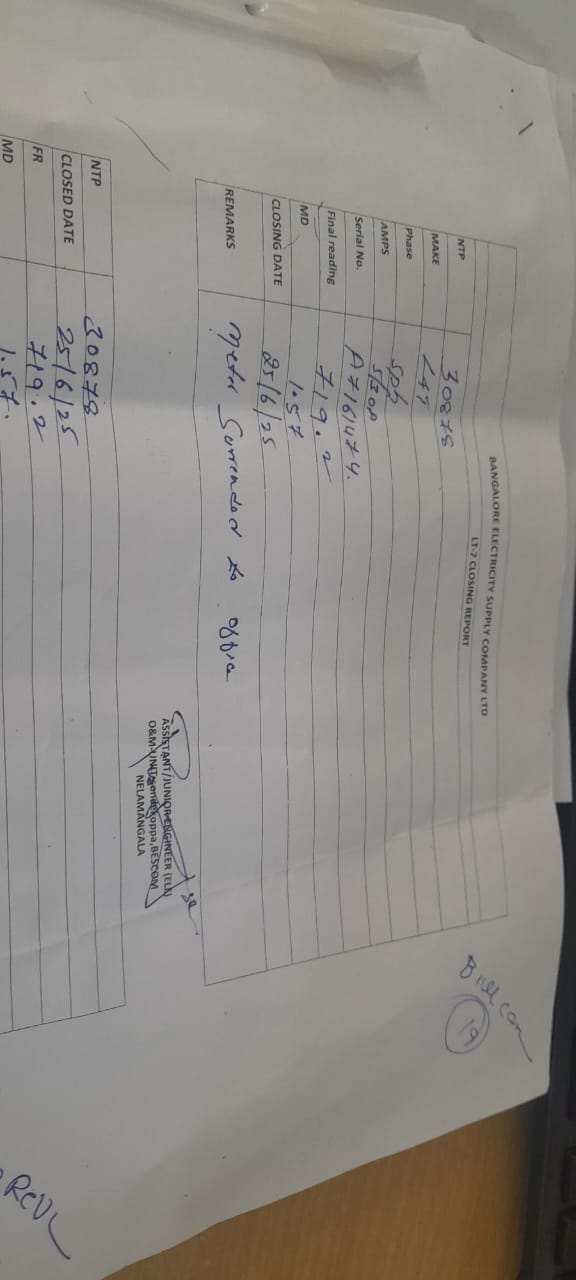 BANGALORE ELECTRICITY SUPPLY COMPANY LTD
LT-7 CLOSING REPORT
NTP 30878
MAKE L&T
Phase Sph
AMPS 5/30A
Serial No. A7161474.
Final reading 719.2
MD 1.57
CLOSING DATE 25/6/25
REMARKS Meter Surrended to office
ASSISTANT/JUNIOR ENGINEER (ELE)
O&M-UNIT Sondekoppa,BESCOM
NELAMANGALA
NTP 30878
CLOSED DATE 25/6/25
FR 719.2
MD 1.57.
Bill
19